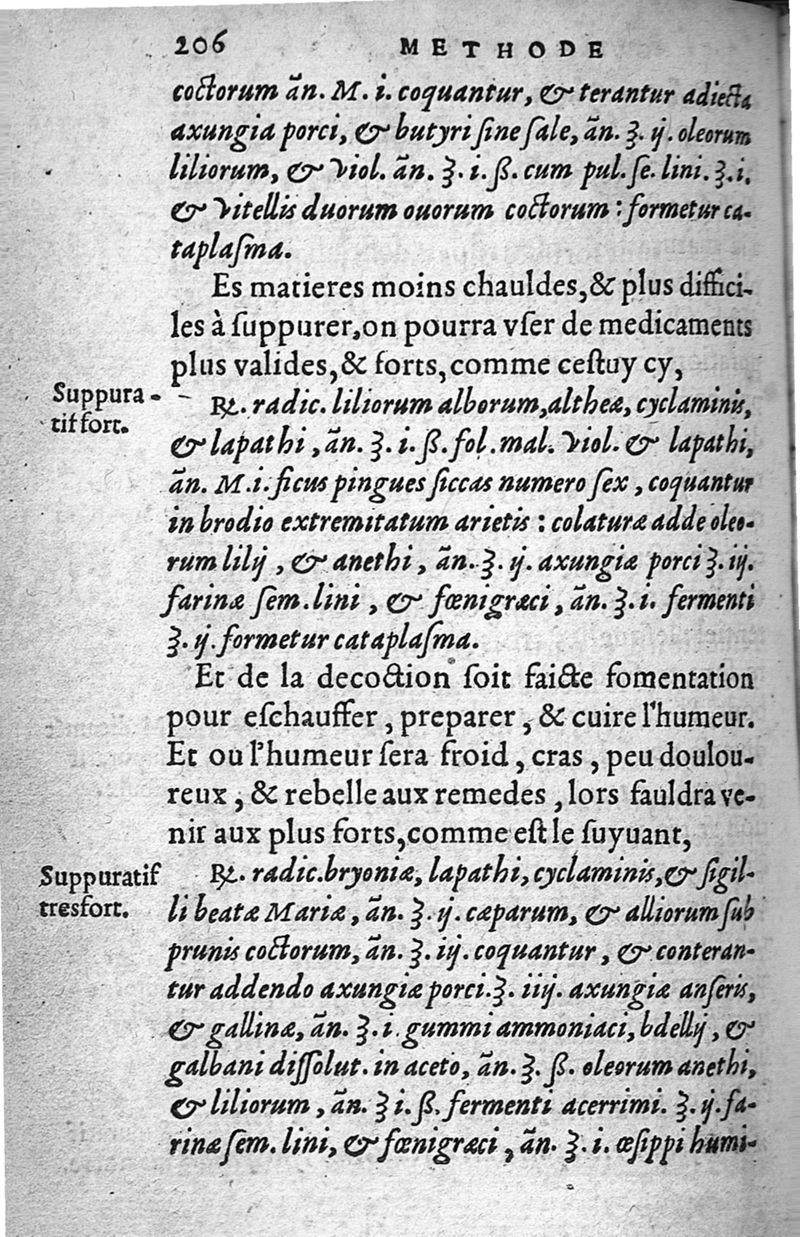 206 METHODE
coctorum ãn. M. i. coquantur, & terantur adiecta
axungia porci, & butyri ſine ſale, ãn. ʒ. ij. oleorum
liliorum, & Viol. ãn. ʒ. i. ß. cum pul. ſe. lini. ʒ. i.
& Vitellis duorum ouorum coctorum : formetur ca-
taplaſma.
Es matieres moins chauldes, & plus diffici-
les à ſuppurer, on pourra vſer de medicaments
plus valides, & forts, comme ceſtuy cy,
Suppura-
tif fort.
℞. radic. liliorum alborum, altheæ, cyclaminis,
& lapathi, ãn. ʒ. i. ß. fol. mal. Viol. & lapathi,
ãn. M. i. ficus pingues ſiccas numero ſex, coquantur
in brodio extremitatum arietis : colaturæ adde oleo-
rum lilij, & anethi, ãn. ʒ. ij. axungiæ porci ʒ. iij.
farinæ ſem. lini, & fœnigræci, ãn. ʒ. i. fermenti
ʒ. ij. formetur cataplaſma.
Et de la decoction ſoit faicte fomentation
pour eſchauffer, preparer, & cuire l'humeur.
Et ou l'humeur ſera froid, cras, peu doulou-
reux, & rebelle aux remedes, lors fauldra ve-
nir aux plus forts, comme eſt le ſuyuant,
Suppuratif
tresfort.
℞. radic. bryoniæ, lapathi, cyclaminis, & ſigil-
li beatæ Mariæ, ãn. ʒ. ij. cæparum, & alliorum ſub
prunis coctorum, ãn. ʒ. iij. coquantur, & conteran-
tur addendo axungiæ porci. ʒ. iiij. axungiæ anſeris,
& gallinæ, ãn. ʒ. i. gummi ammoniaci, bdellij, &
galbani diſſolut. in aceto, ãn. ʒ. ß. oleorum anethi,
& liliorum, ãn. ʒ i. ß. fermenti acerrimi. ʒ. ij. fa-
rinæ ſem. lini, & fœnigræci, ãn. ʒ. i. œſippi humi-